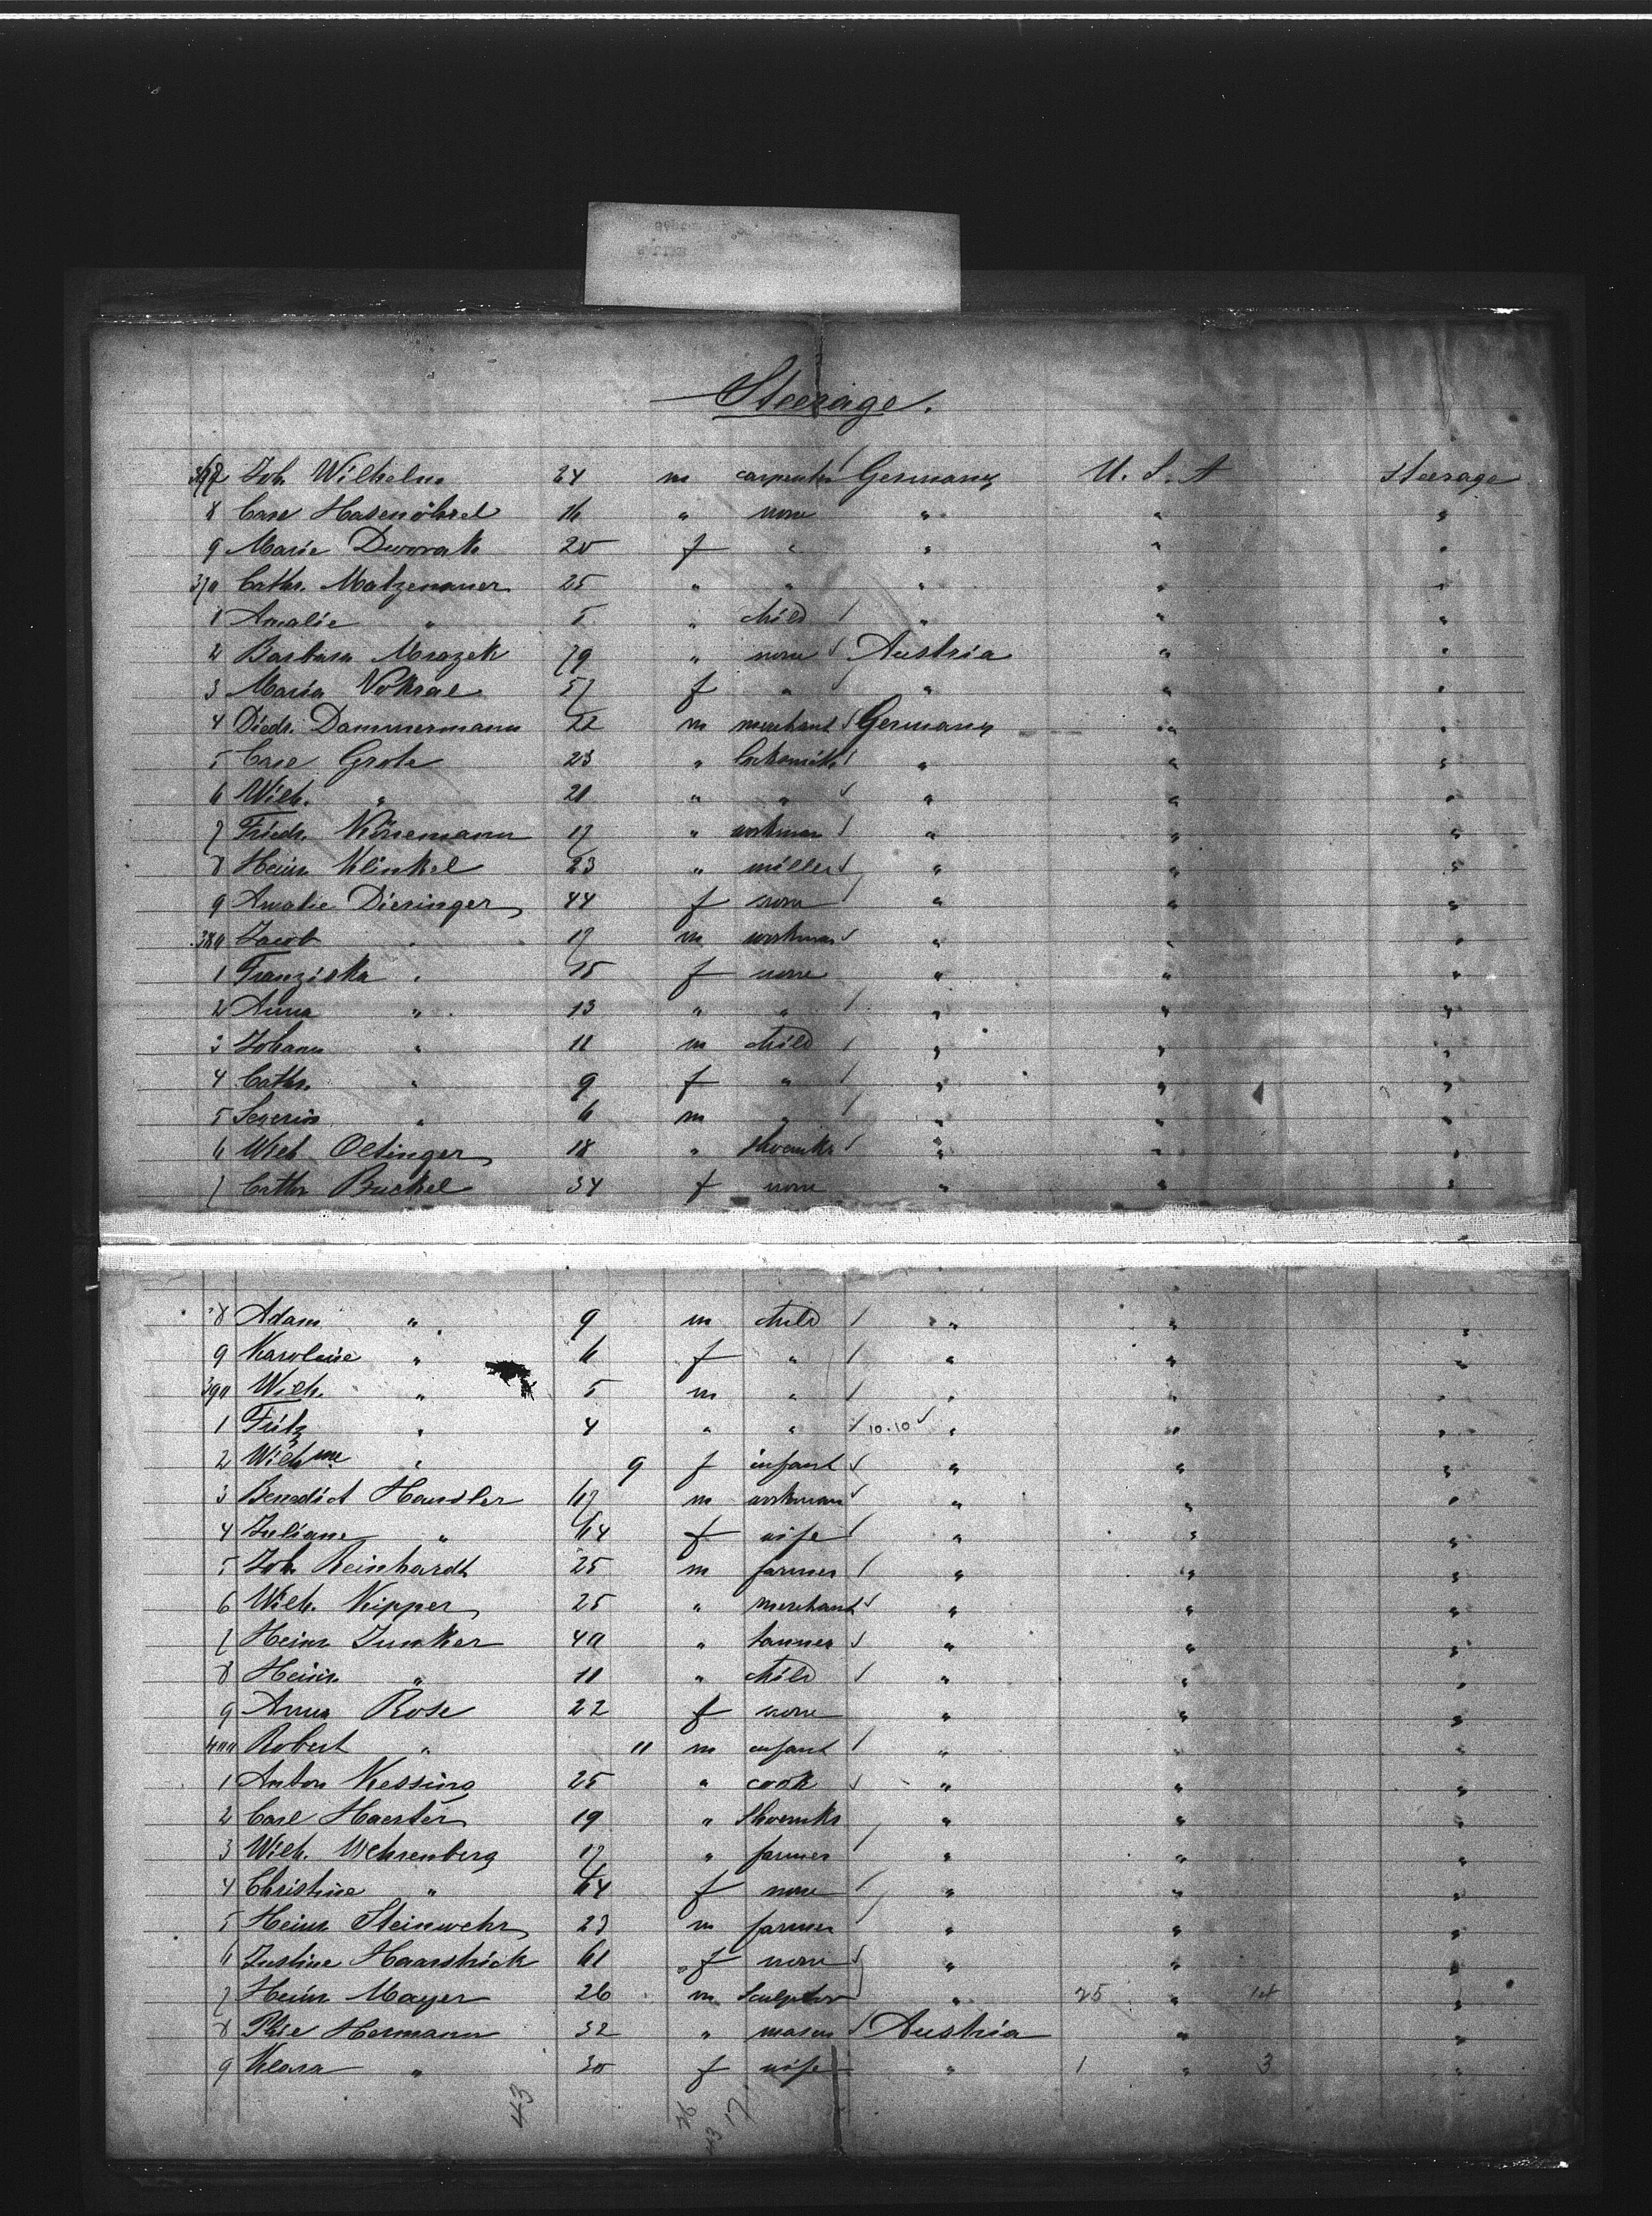 Steerage.
367 Joh. Wilhelm 24 m carpenter Germany U. S. A Steerage
8 Carl Hasenöhrel 16 " none " " "
9 Marie Dworak 20 f " " " "
370 Cathr. Matzenauer 25 " " " " "
1 Amalie " 5 " child " " "
2 Barbara Mrazek 79 " none Austria " "
3 Maria Vokral 57 f " " " "
4 Diedr. Dammermann 22 m merchant Germany " "
5 Carl Grote 23 " locksmith " " "
6 Wilh. " 21 " " " " "
7 Friedr. Körremann 17 " workman " " "
8 Heinr. Klinkel 23 " miller " " "
9 Amalie Dieringer 44 f none " " "
380 Jacob " 17 m workman " " "
1 Franziska " 15 f none " " "
2 Anna " 13 " " " " "
3 Johann " 11 m child " " "
4 Cathr. " 9 f " " " "
5 Severin " 6 m " " " "
6 Wilh. Oltinger 18 " shoemkr " " "
7 Cathr. Buckel 34 f none " " "
8 Adam " 9 m child " " "
9 Karoline " 6 f " " " "
390 Wilh. " 5 m " " " "
1 Fritz " 4 " " 10.10 " " "
2 Wilhme " 9 f infant " " "
3 Benedict Handler 67 m workman " " "
4 Juliane " 64 f wife " " "
5 Joh. Reinhardt 25 m farmer " " "
6 Wilh. Kipper 25 " merchant " " "
7 Heinr. Junker 40 " tanner " " "
8 Heinr. " 11 " child " " "
9 Anna Rose 22 f none " " "
400 Robert " 11 m infant " " "
1 Anton Kessing 25 " cook " " "
2 Carl Haerter 19 " Shoemkr " " "
3 Wilh. Wehrenberg 17 " farmer " " "
4 Christine " 64 f none " " "
5 Heinr. Steinwehr 23 m farmer " " "
6 Justine Haarstrick 61 f none " " "
7 Heinr. Mayer 26 m Sculptor " 25 " "
8 Phie Hermann 32 " mason Austria " "
9 Klara " 30 f wife " 1 " 3 "
43 26 17
43